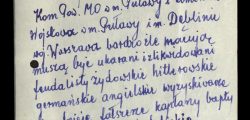 Kom Pow. M.O w m. Puławy i
Wojskowa w m. Puławy i m. Dęblinie
woj Warszawa bardzo źle pracują
muszą być ukarani i zlikwidowani
feudaliści żydowskie hitlerowskie
germańskie angielskie wyzyskiwane
fałszerze kapłany